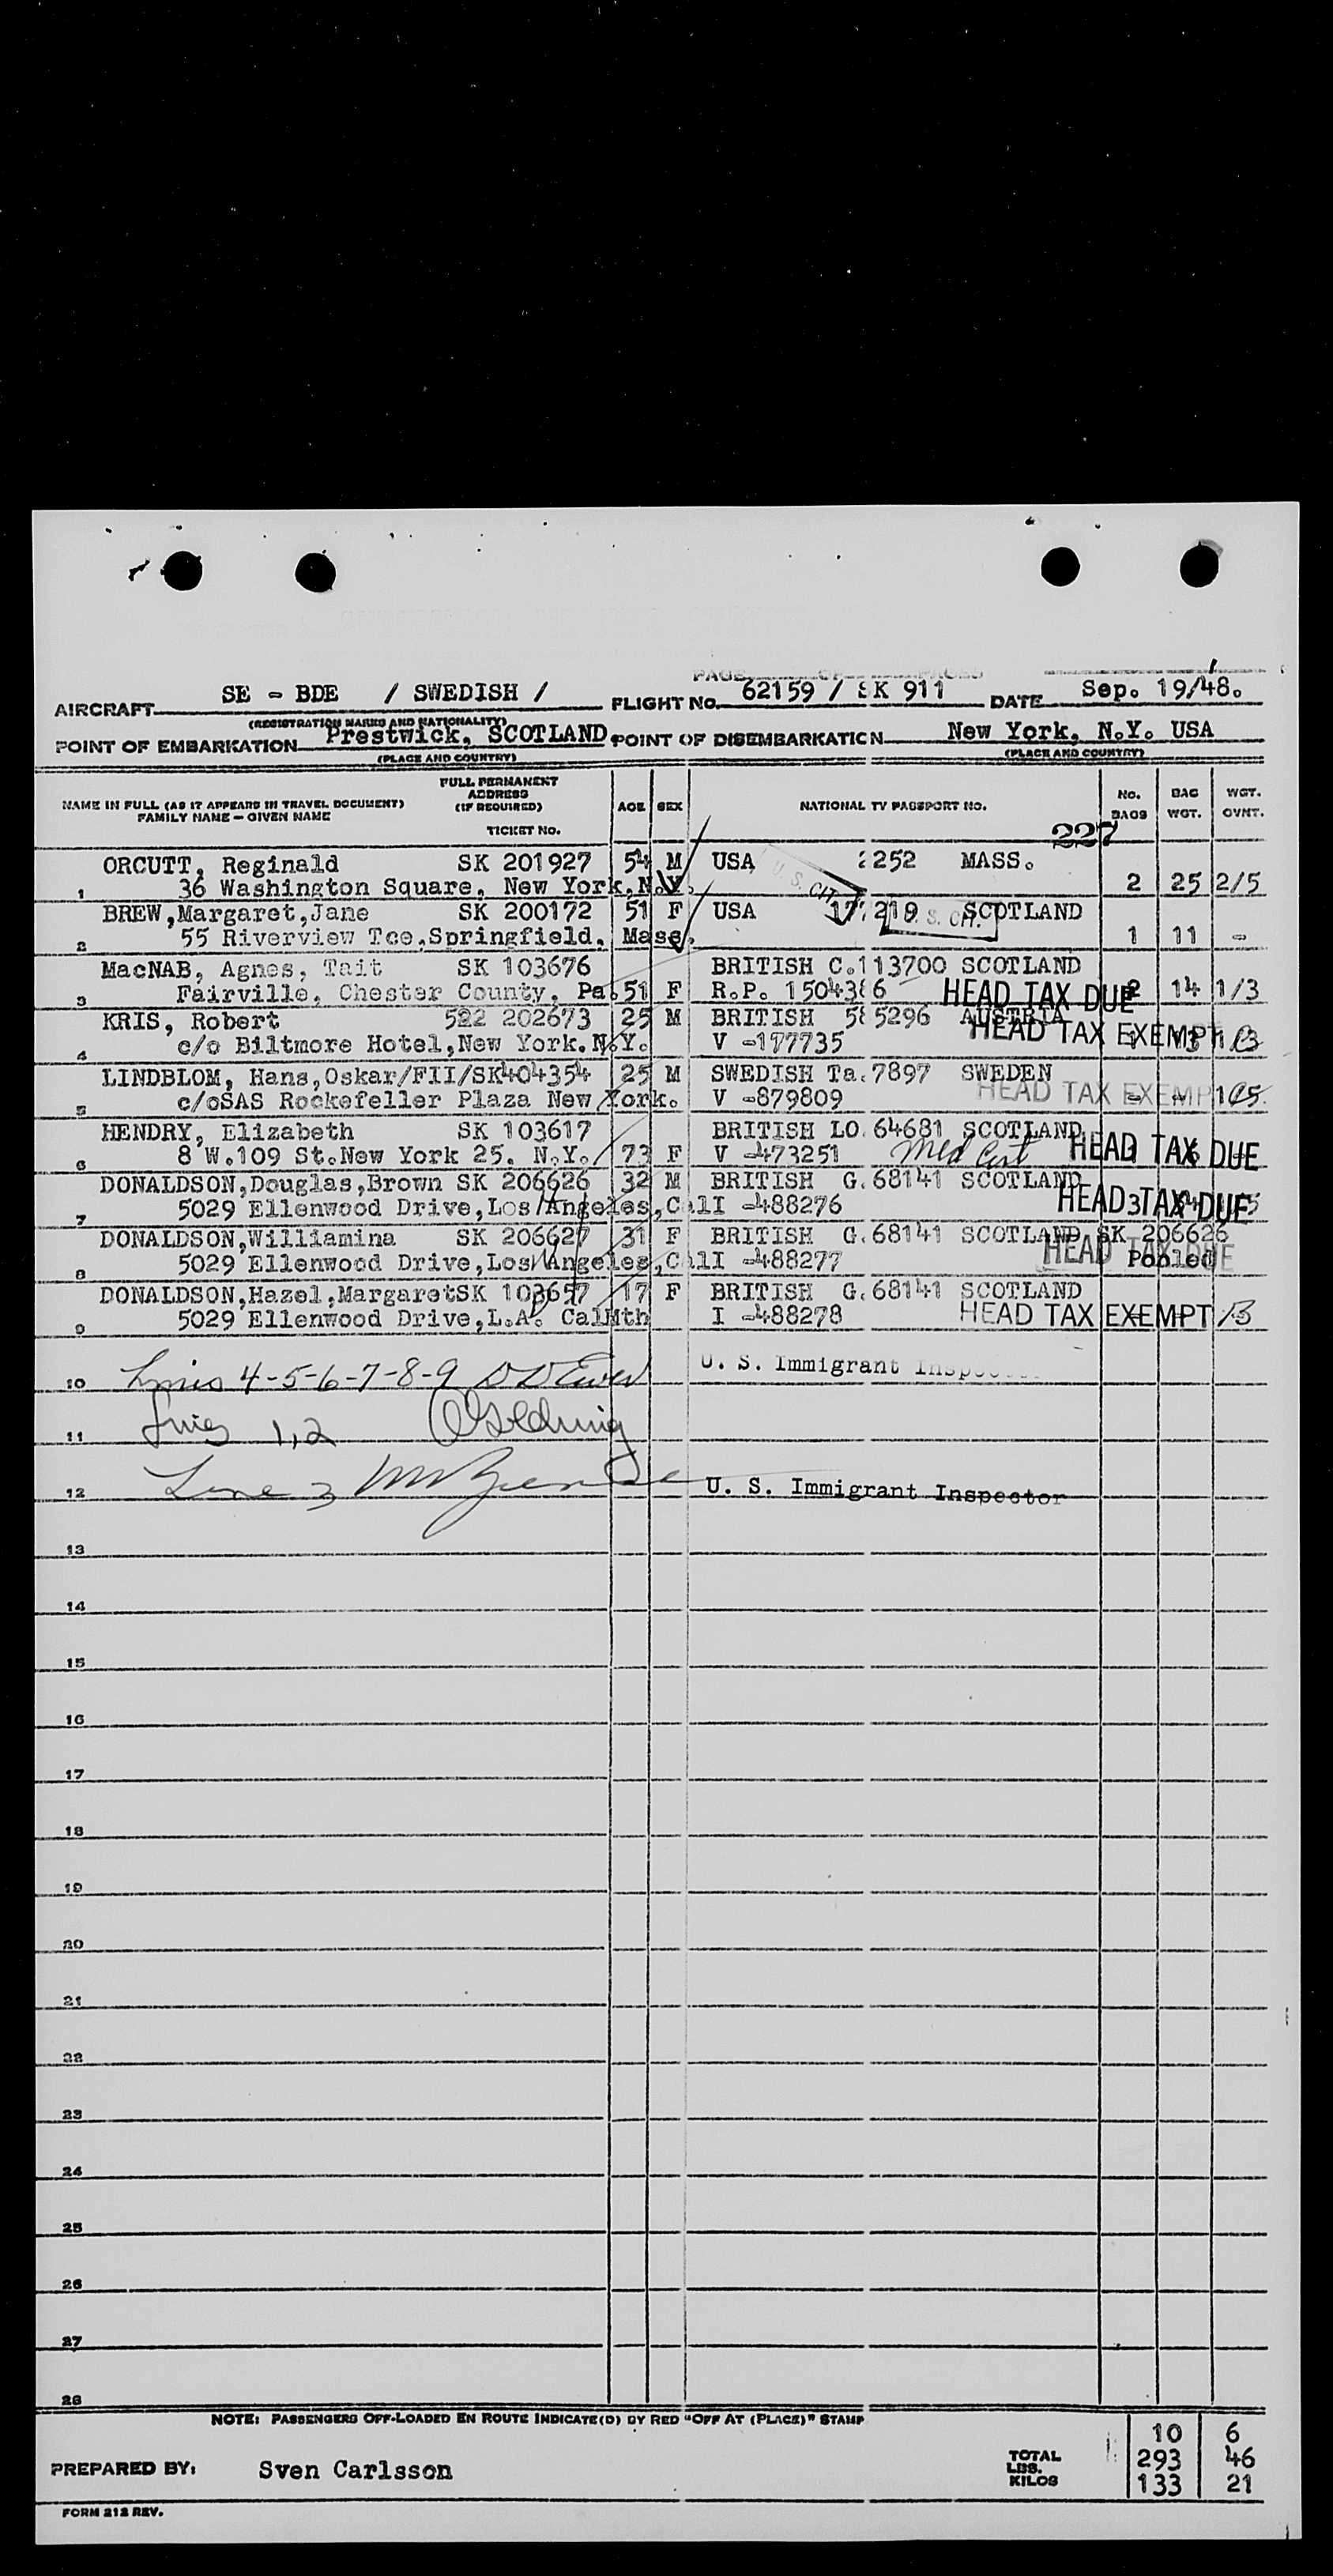 PAGE OF PAGES
AIRCRAFT SE - BDE / SWEDISH / FLIGHT NO. 62159 / SK 911 DATE Sep. 19/48.
(REGISTRATION MARKS AND NATIONALITY)
POINT OF EMBARKATION Prestwick, SCOTLAND POINT OF DISEMBARKATION New York, N.Y. USA
(PLACE AND COUNTRY) (PLACE AND COUNTRY)
NAME IN FULL (AS IT APPEARS IN TRAVEL DOCUMENT) FAMILY NAME — GIVEN NAME
FULL PERMANENT ADDRESS (IF REQUIRED) TICKET NO.
AGE SEX NATIONAL TY PASSPORT NO. No. BAGS BAG WGT. WGT. OVNT.
227
ORCUTT, Reginald SK 201927 54 M USA 2252 MASS.
1 36 Washington Square, New York, N.Y. U. S. CIT. 2 25 2/5
BREW,Margaret,Jane SK 200172 51 F USA 219 SCOTLAND
2 55 Riverview Tce.Springfield, Mass. U. S. CIT. 1 11 -
MacNAB, Agnes, Tait SK 103676 BRITISH C.113700 SCOTLAND
3 Fairville, Chester County, Pa. 51 F R.P. HEAD TAX DUE 2 14 1/3
KRIS, Robert 202673 25 M BRITISH 5296 AUSTRIA
4 c/o Biltmore Hotel,New York.N.Y. V -177735 HEAD TAX EXEMPT
LINDBLOM, Hans,Oskar/FII/SK404354 25 M SWEDISH Ta.7897 SWEDEN
5 c/oSAS Rockefeller Plaza New York. V -879809 HEAD TAX EXEMPT
HENDRY, Elizabeth SK 103617 BRITISH LO.64681 SCOTLAND
6 8 W.109 St.New York 25. N.Y. 73 F V -473251 Med Cert HEAD TAX DUE
DONALDSON,Douglas,Brown SK 206626 32 M BRITISH G.68141 SCOTLAND
7 5029 Ellenwood Drive,Los Angeles,Cal I -488276 HEAD TAX DUE
DONALDSON,Williamina SK 206627 31 F BRITISH G.68141 SCOTLAND SK 206626
8 5029 Ellenwood Drive,Los Angeles,Cal I -488277 HEAD TAX DUE Pooled
DONALDSON,Hazel,MargaretSK 103657 17 F BRITISH G.68141 SCOTLAND
9 5029 Ellenwood Drive,L.A. Cal Mth I -488278 HEAD TAX EXEMPT
10 Lines 4-5-6-7-8-9 U. S. Immigrant Inspector
11 Lines 1,2
12 Line 3 U. S. Immigrant Inspector
13
14
15
16
17
18
19
20
21
22
23
24
25
26
27
28
NOTE: PASSENGERS OFF-LOADED EN ROUTE INDICATE(D) BY RED "OFF AT (PLACE)" STAMP
10 6
TOTAL LBS. 293 46
KILOS 133 21
PREPARED BY: Sven Carlsson
FORM 212 REV.